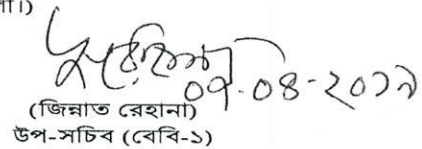 ০৭-০৪-২০১৯
(জিন্নাত রেহানা)
উপ-সচিব (বেবি-১)